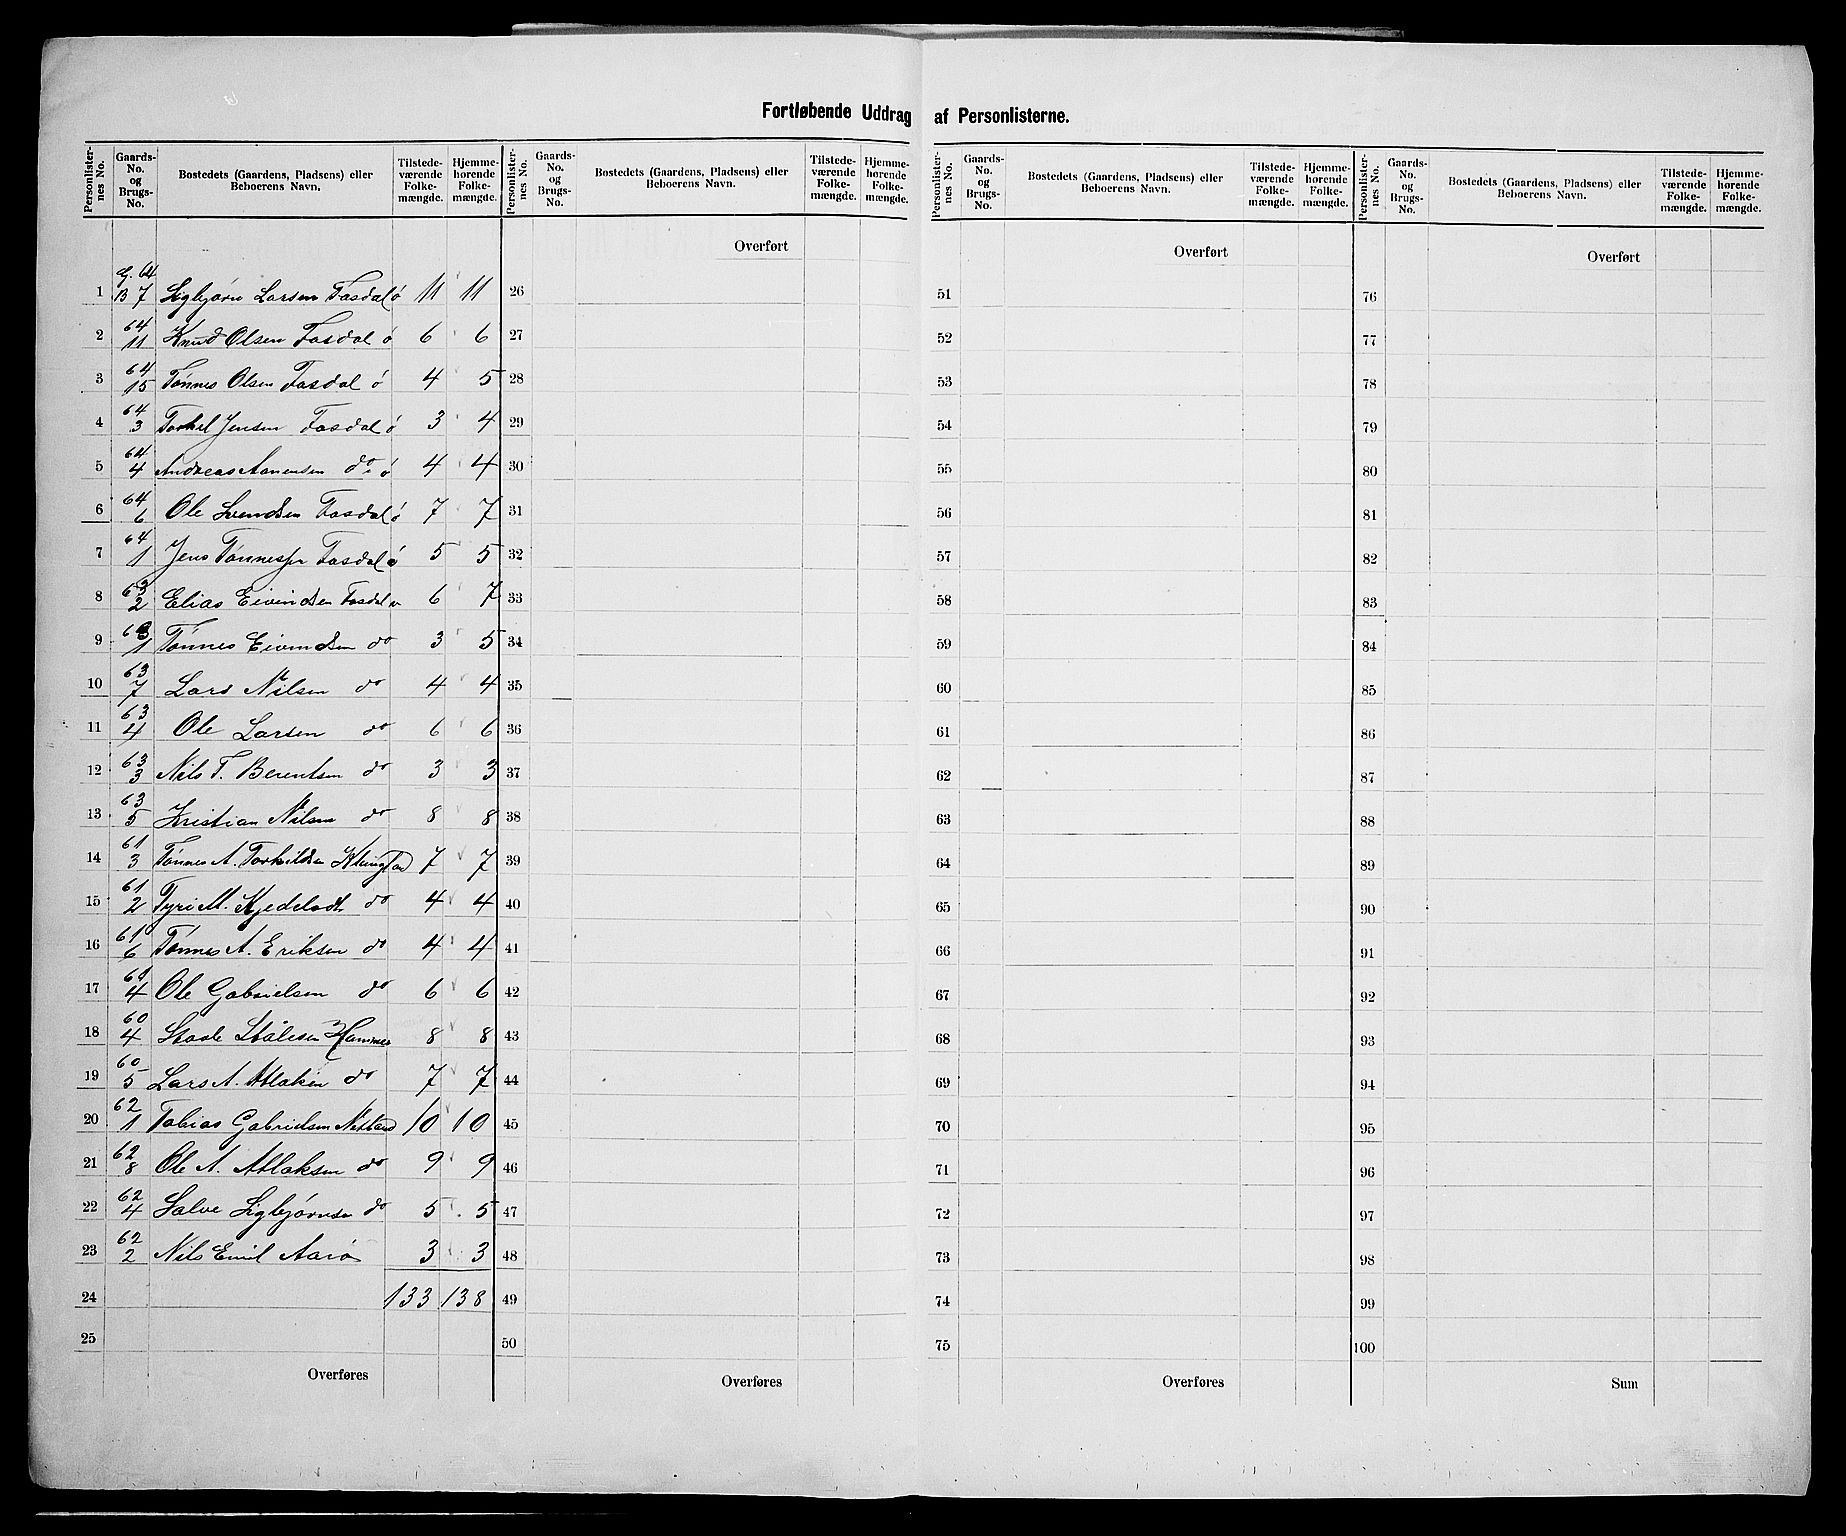 Fortløbende Uddrag af Personlisterne.
Personlisternes No. Gaards-No. og Brugs-No. Bostedets (Gaardens, Pladsens) eller Beboerens Navn. Tilstedeværende Folkemængde. Hjemmehørende Folkemængde.
Personlisternes No. Gaards-No. og Brugs-No. Bostedets (Gaardens, Pladsens) eller Beboerens Navn. Tilstedeværende Folkemængde. Hjemmehørende Folkemængde.
Personlisternes No. Gaards-No. og Brugs-No. Bostedets (Gaardens, Pladsens) eller Beboerens Navn. Tilstedeværende Folkemængde. Hjemmehørende Folkemængde.
Personlisternes No. Gaards-No. og Brugs-No. Bostedets (Gaardens, Pladsens) eller Beboerens Navn. Tilstedeværende Folkemængde. Hjemmehørende Folkemængde.
Overført Overført Overført
1 G. 64 B 7 Sigbjørn Larsen Fasdal ø 11 11 26 51 76
2 64 11 Knud Olsen Fasdal ø 6 6 27 52 77
3 64 15 Tønnes Olsen Fasdal ø 4 5 28 53 78
4 64 3 Torkel Jensen Fasdal ø 3 4 29 54 79
5 64 4 Andreas Aanensen do ø 4 4 30 55 80
6 64 6 Ole Svendsen Fasdal ø 7 7 31 56 81
7 64 1 Jens Tønnessen Fasdal ø 5 5 32 57 82
8 63 2 Elias Eivindsen Fasdal v 6 7 33 58 83
9 63 1 Tønnes Eivindsen do 3 5 34 59 84
10 63 7 Lars Nilsen do 4 4 35 60 85
11 63 4 Ole Larsen do 6 6 36 61 86
12 63 3 Nils T. Berentsen do 3 3 37 62 87
13 63 5 Kristian Nilsen do 8 8 38 63 88
14 61 3 Tønnes A. Torkildsen 7 7 39 64 89
15 61 2 Tyri M. do 4 4 40 65 90
16 61 6 Tønnes A. Eriksen do 4 4 41 66 91
17 61 4 Ole Gabrielsen do 6 6 42 67 92
18 60 4 Staale Stålesen Hammer 8 8 43 68 93
19 60 5 Lars A. do 7 7 44 69 94
20 62 1 Tobias Gabrielsen Netland 10 10 45 70 95
21 62 8 Ole A. Atlaksen do 9 9 46 71 96
22 62 4 Salve Sigbjørnsen do 5 5 47 72 97
23 62 2 Nils Emil Aarø 3 3 48 73 98
24 133 138 49 74 99
25 50 75 100
Overføres Overføres Overføres Sum